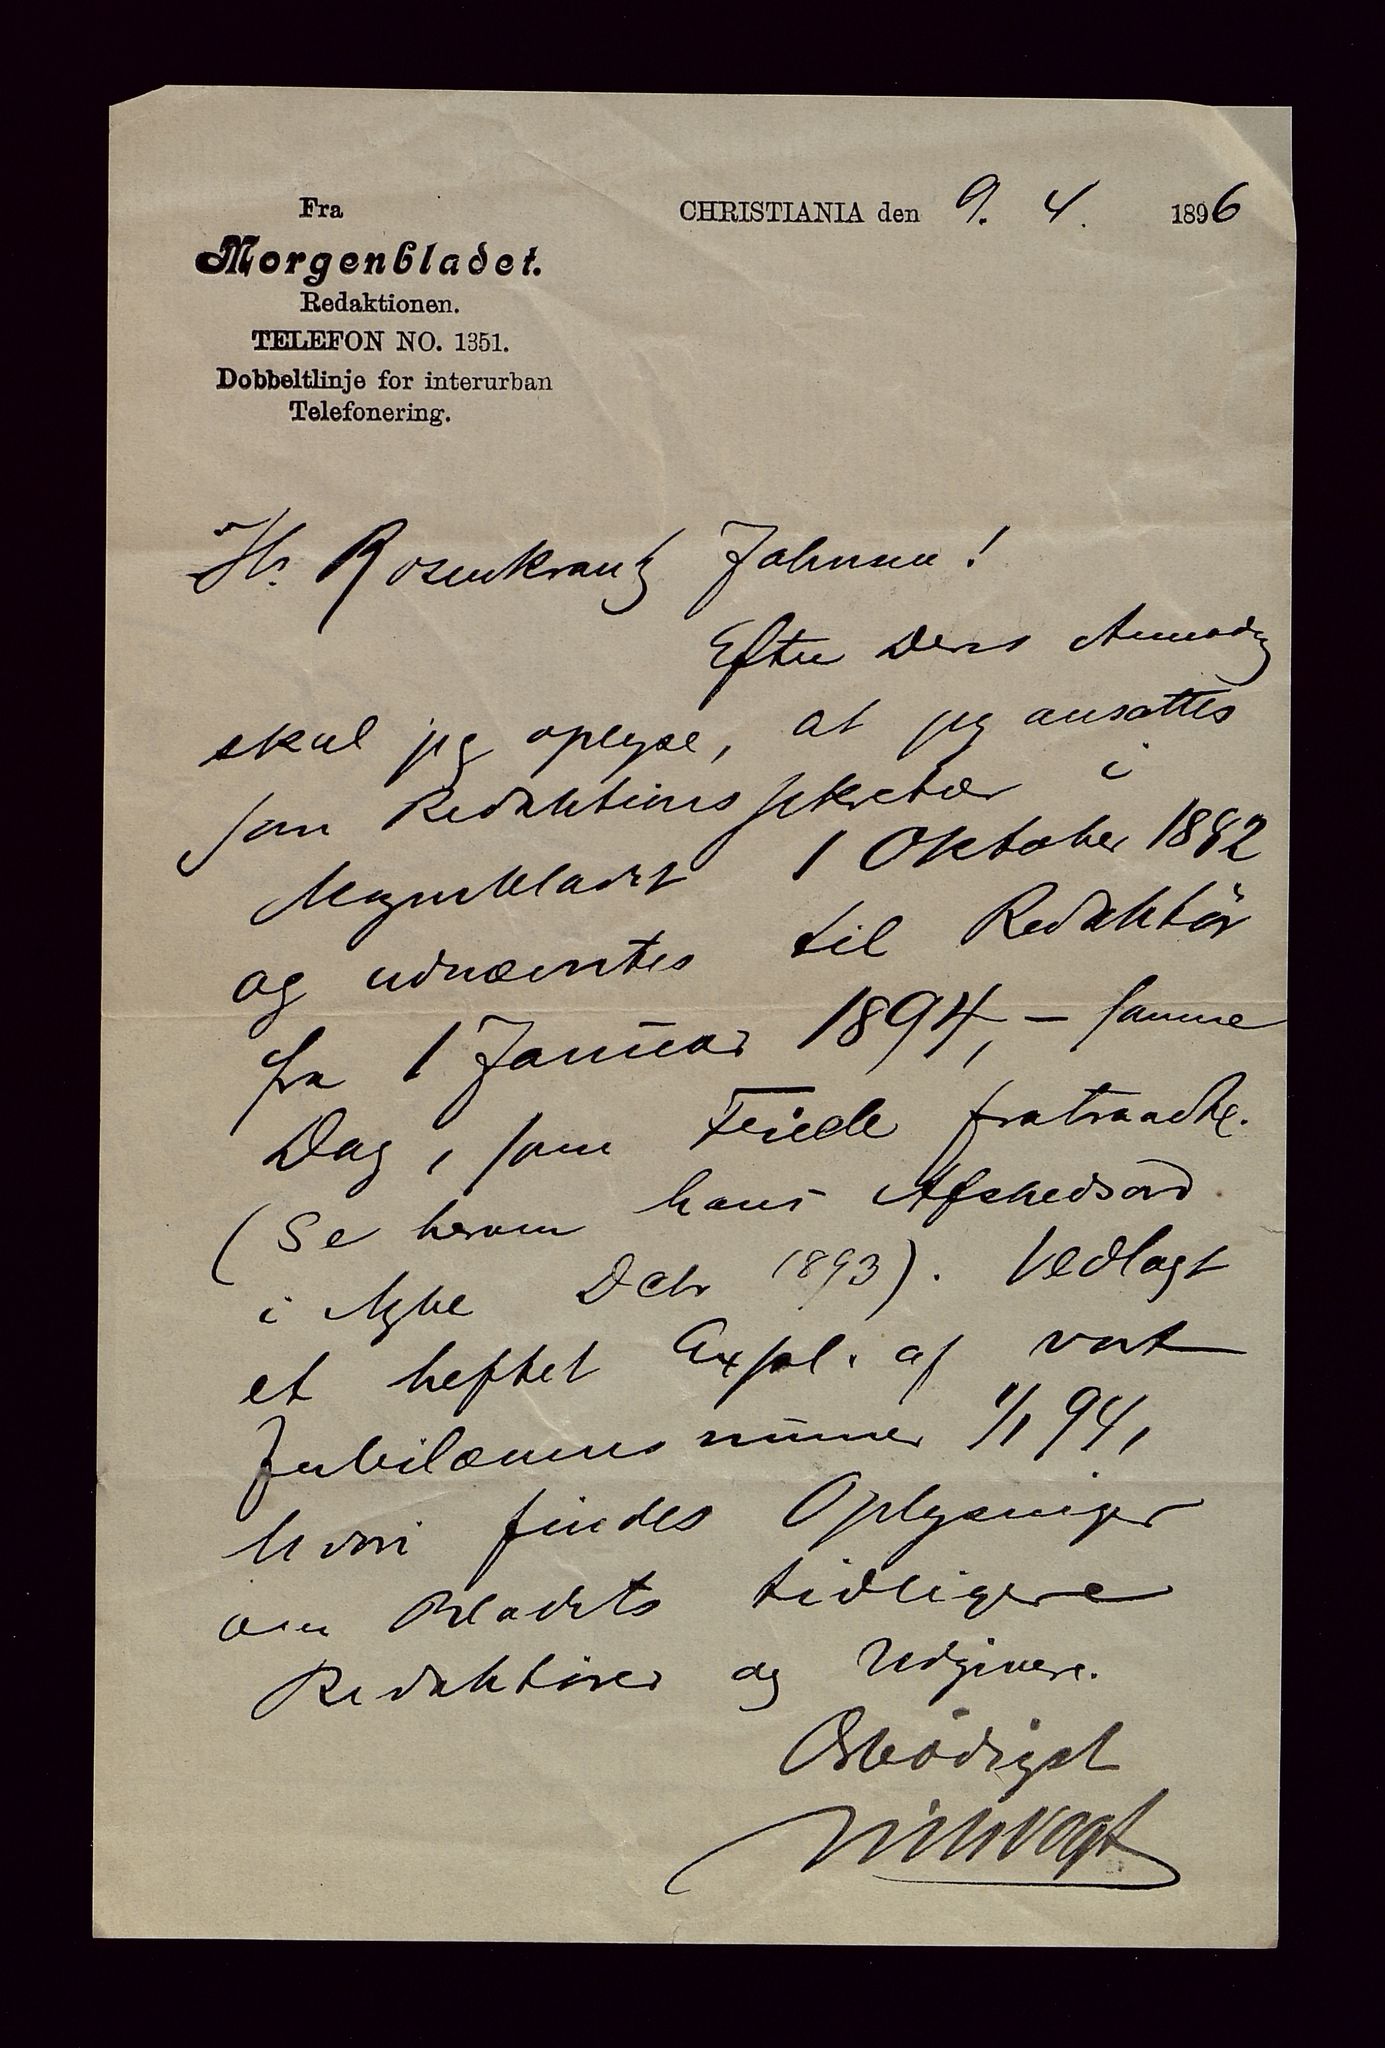 Fra
Morgenbladet.
Redaktionen.
TELEFON NO. 1351.
Dobbeltlinje for interurban
Telefonering.
CHRISTIANIA den 9. 4. 1896
Hr. Rosenkrantz Johnsen!
Efter Deres Anmodng
skal jeg oplyse, at jeg ansattes
som Redaktionssekretær i
Morgenbladet 1 Oktober 1882
og udnævntes til Redaktör
fra 1 Januar 1894, – samme
Dag, som Friele fratraadte.
(Se herom hans Afskedsord
i Mgbl Dcbr 1893). Vedlagt
et heftet Expl. af vort
Jubilæumsnummer 1/1 94,
hvori findes Oplysninger
om Bladets tidligere
Redaktörer og Udgivere.
Ærbödigst
Nils Vogt